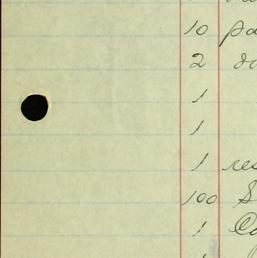 10 pa
2 do
1
1
1 res
100 S
1 Co
1